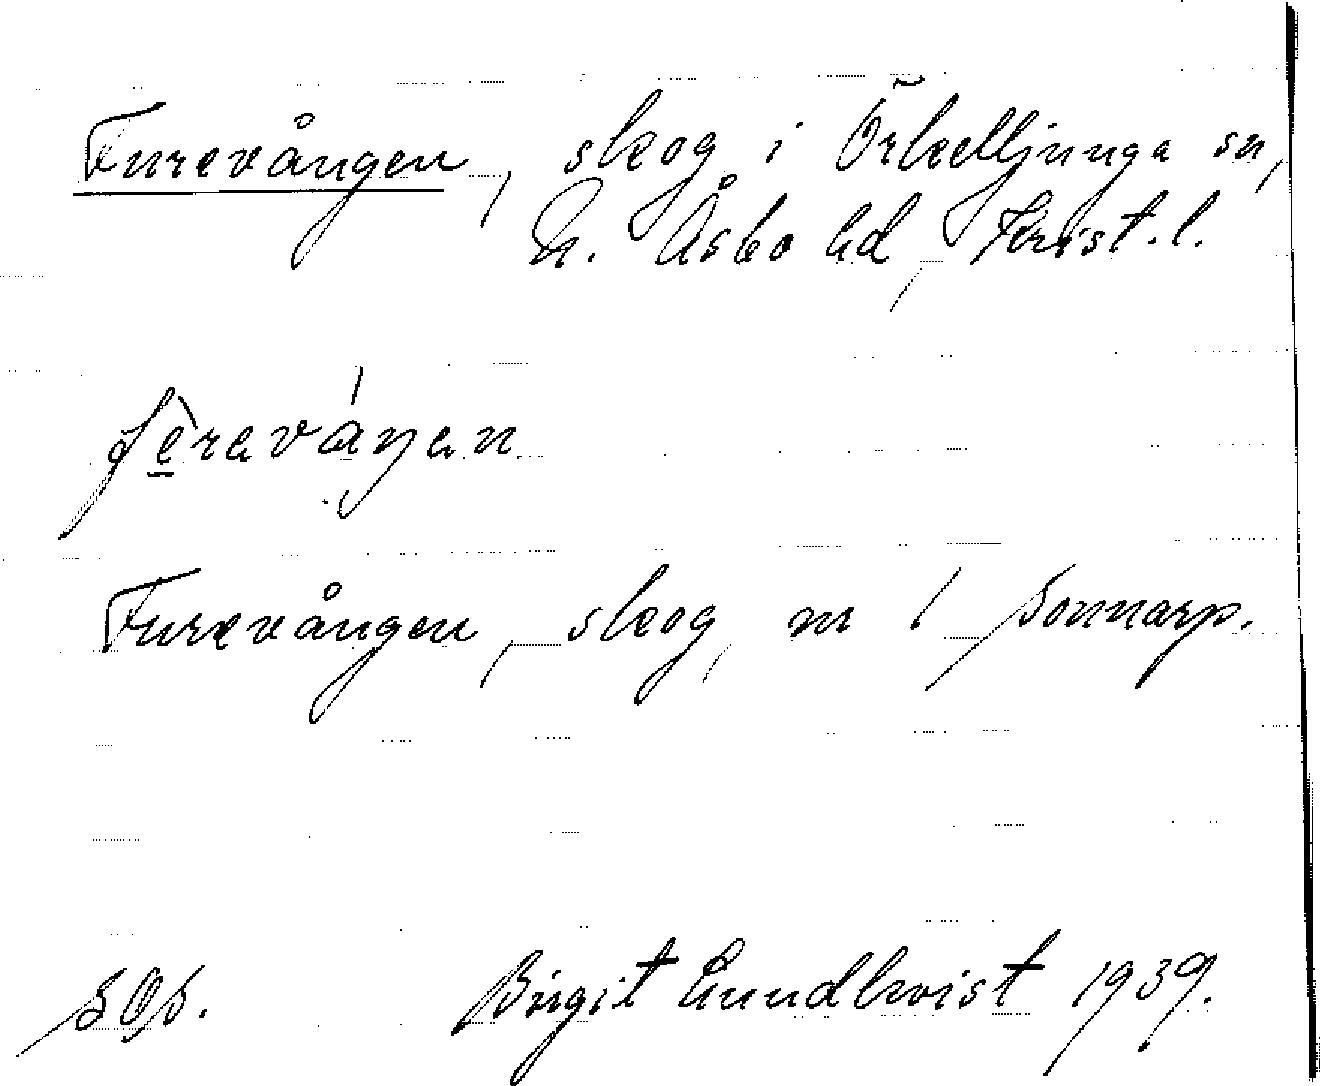 Furevången, skog i Örkelljunga sn,
N. Åsbo hd, Krist. l.
Furevången, skog, nr 1 Sonnarp.
SOS. Birgit Lundkvist 1939.